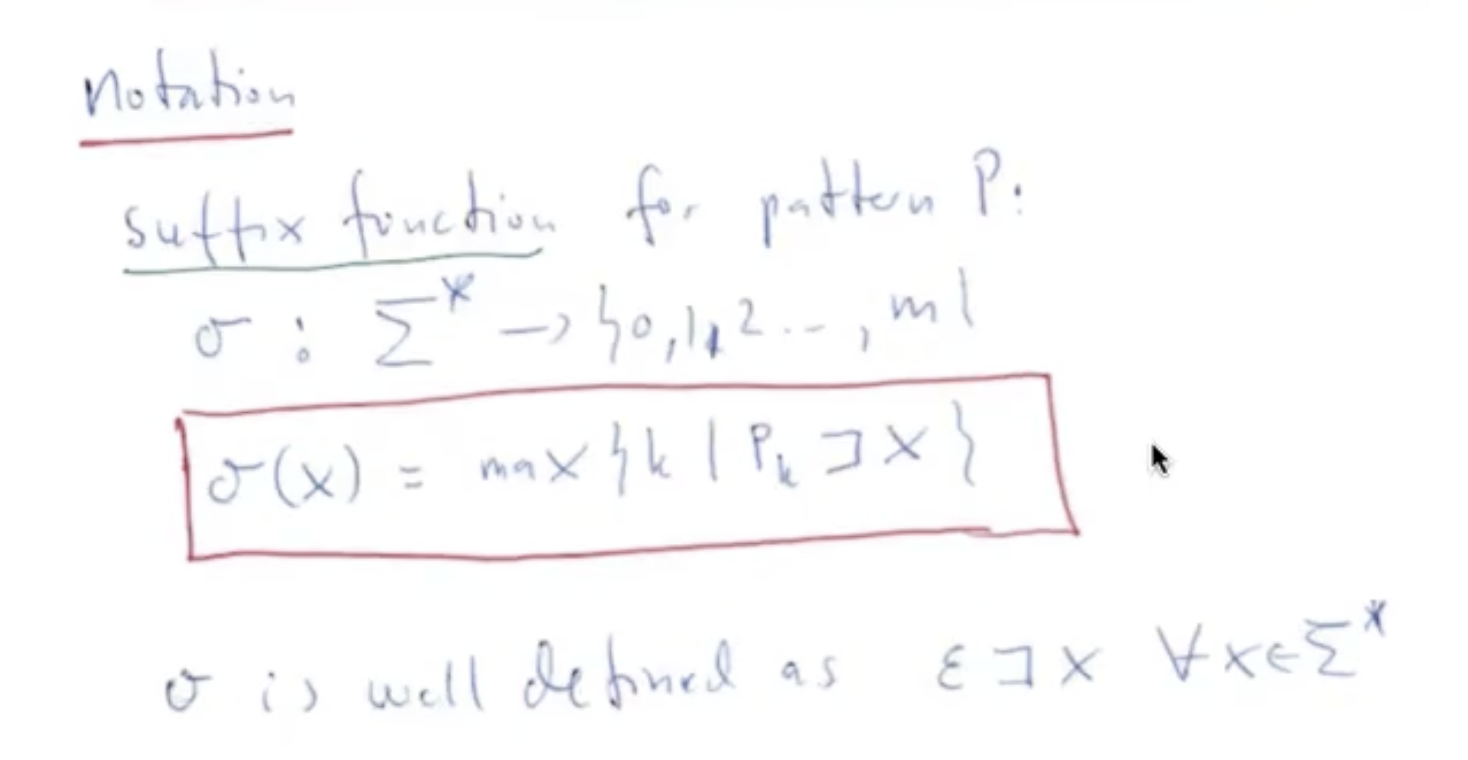 Notation
Suffix function for pattern P:
σ : Σ* → {0,1,2..., m}
σ(x) = max {k | P_k ⊐ x}
σ is well defined as ε ⊐ x ∀x∈Σ*